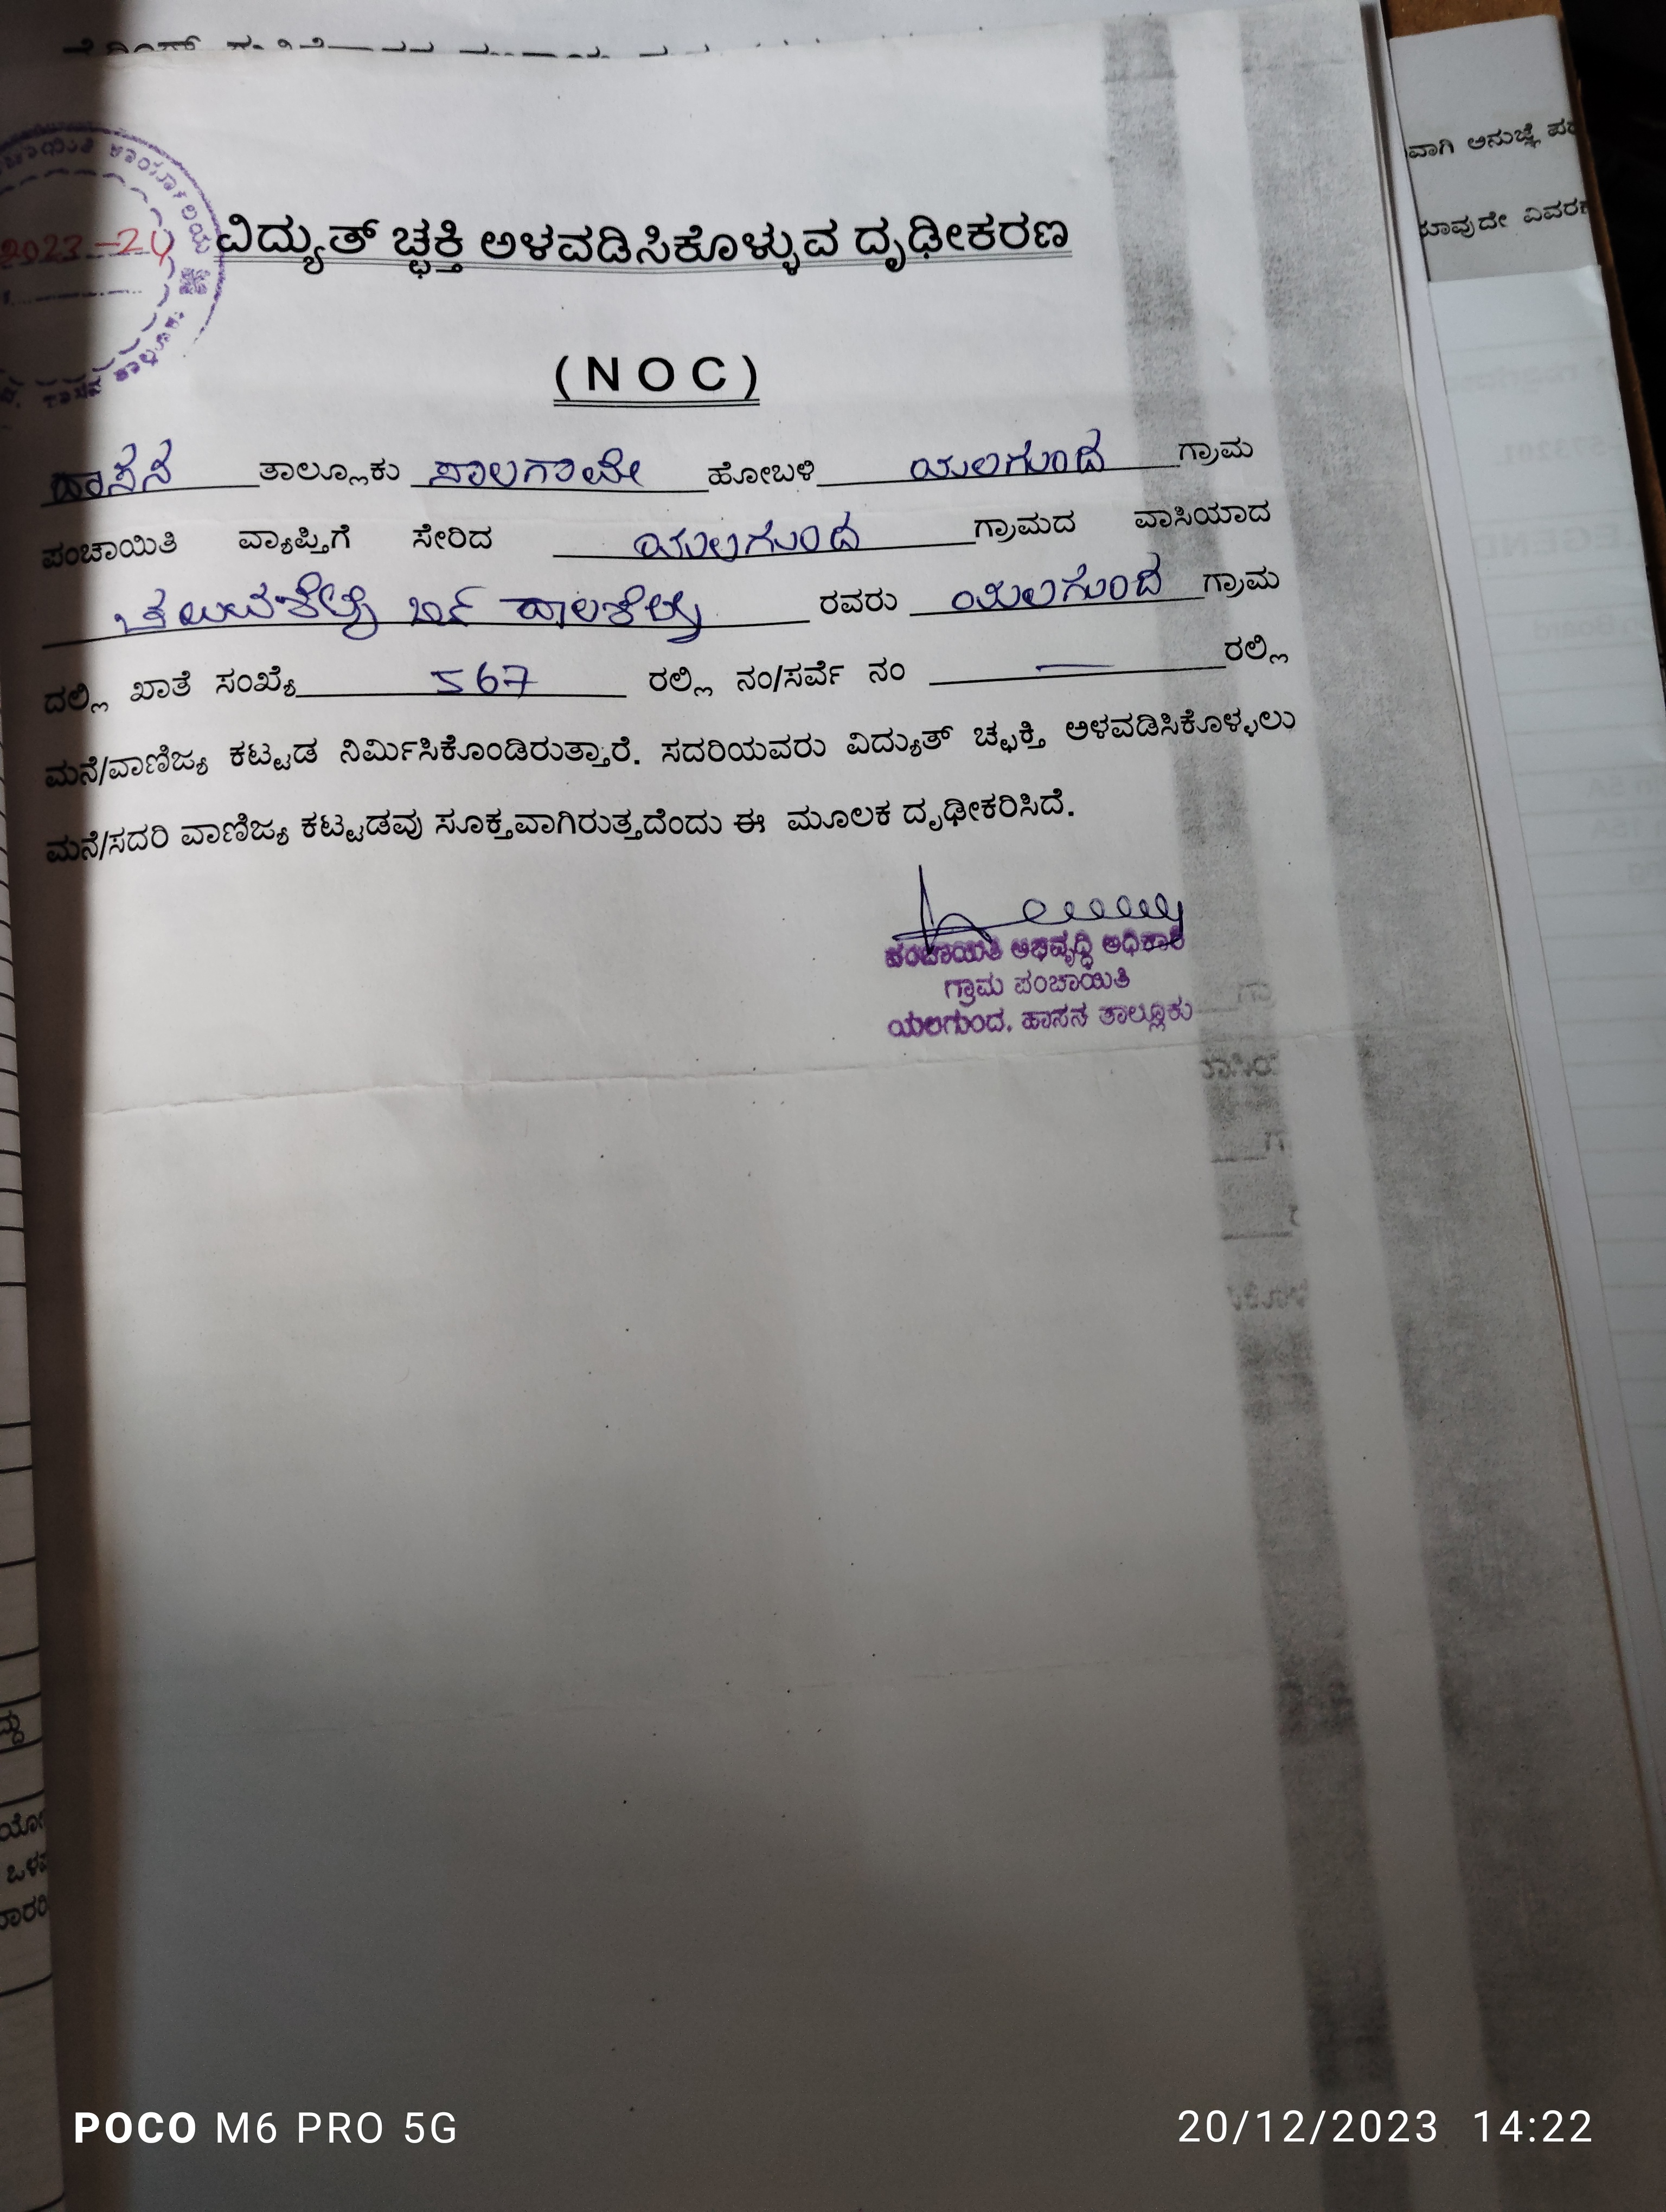 ವಾಗಿ ಅನುಜ್ಞೆ ಪರ
ಯಾವುದೇ ವಿವರಣ
2023-24
ವಿದ್ಯುತ್ ಚ್ಛಕ್ತಿ ಅಳವಡಿಸಿಕೊಳ್ಳುವ ದೃಢೀಕರಣ
(NOC)
ಹಾಸನ ತಾಲ್ಲೂಕು ಸಾಲಗಾಮೇ ಹೋಬಳಿ ಯಲಗುಂದ ಗ್ರಾಮ
ಪಂಚಾಯಿತಿ ವ್ಯಾಪ್ತಿಗೆ ಸೇರಿದ ಯಲಗುಂದ ಗ್ರಾಮದ ವಾಸಿಯಾದ
ರವರು ಯಲಗುಂದ ಗ್ರಾಮ
ದಲ್ಲಿ ಖಾತೆ ಸಂಖ್ಯೆ 567 ರಲ್ಲಿ ನಂ/ಸರ್ವೆ ನಂ — ರಲ್ಲಿ
ಮನೆ/ವಾಣಿಜ್ಯ ಕಟ್ಟಡ ನಿರ್ಮಿಸಿಕೊಂಡಿರುತ್ತಾರೆ. ಸದರಿಯವರು ವಿದ್ಯುತ್ ಚ್ಛಕ್ತಿ ಅಳವಡಿಸಿಕೊಳ್ಳಲು
ಮನೆ/ಸದರಿ ವಾಣಿಜ್ಯ ಕಟ್ಟಡವು ಸೂಕ್ತವಾಗಿರುತ್ತದೆಂದು ಈ ಮೂಲಕ ದೃಢೀಕರಿಸಿದೆ.
ಪಂಚಾಯಿತಿ ಅಭಿವೃದ್ಧಿ ಅಧಿಕಾರಿ
ಗ್ರಾಮ ಪಂಚಾಯಿತಿ
ಯಲಗುಂದ, ಹಾಸನ ತಾಲ್ಲೂಕು
POCO M6 PRO 5G
20/12/2023 14:22